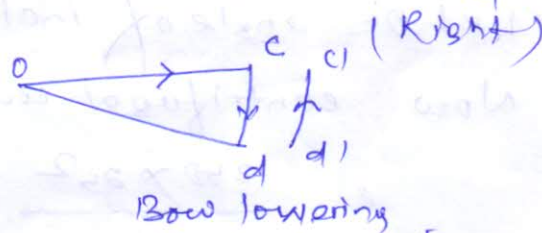 C C1 (Right)
O
d d1
Bow lowering